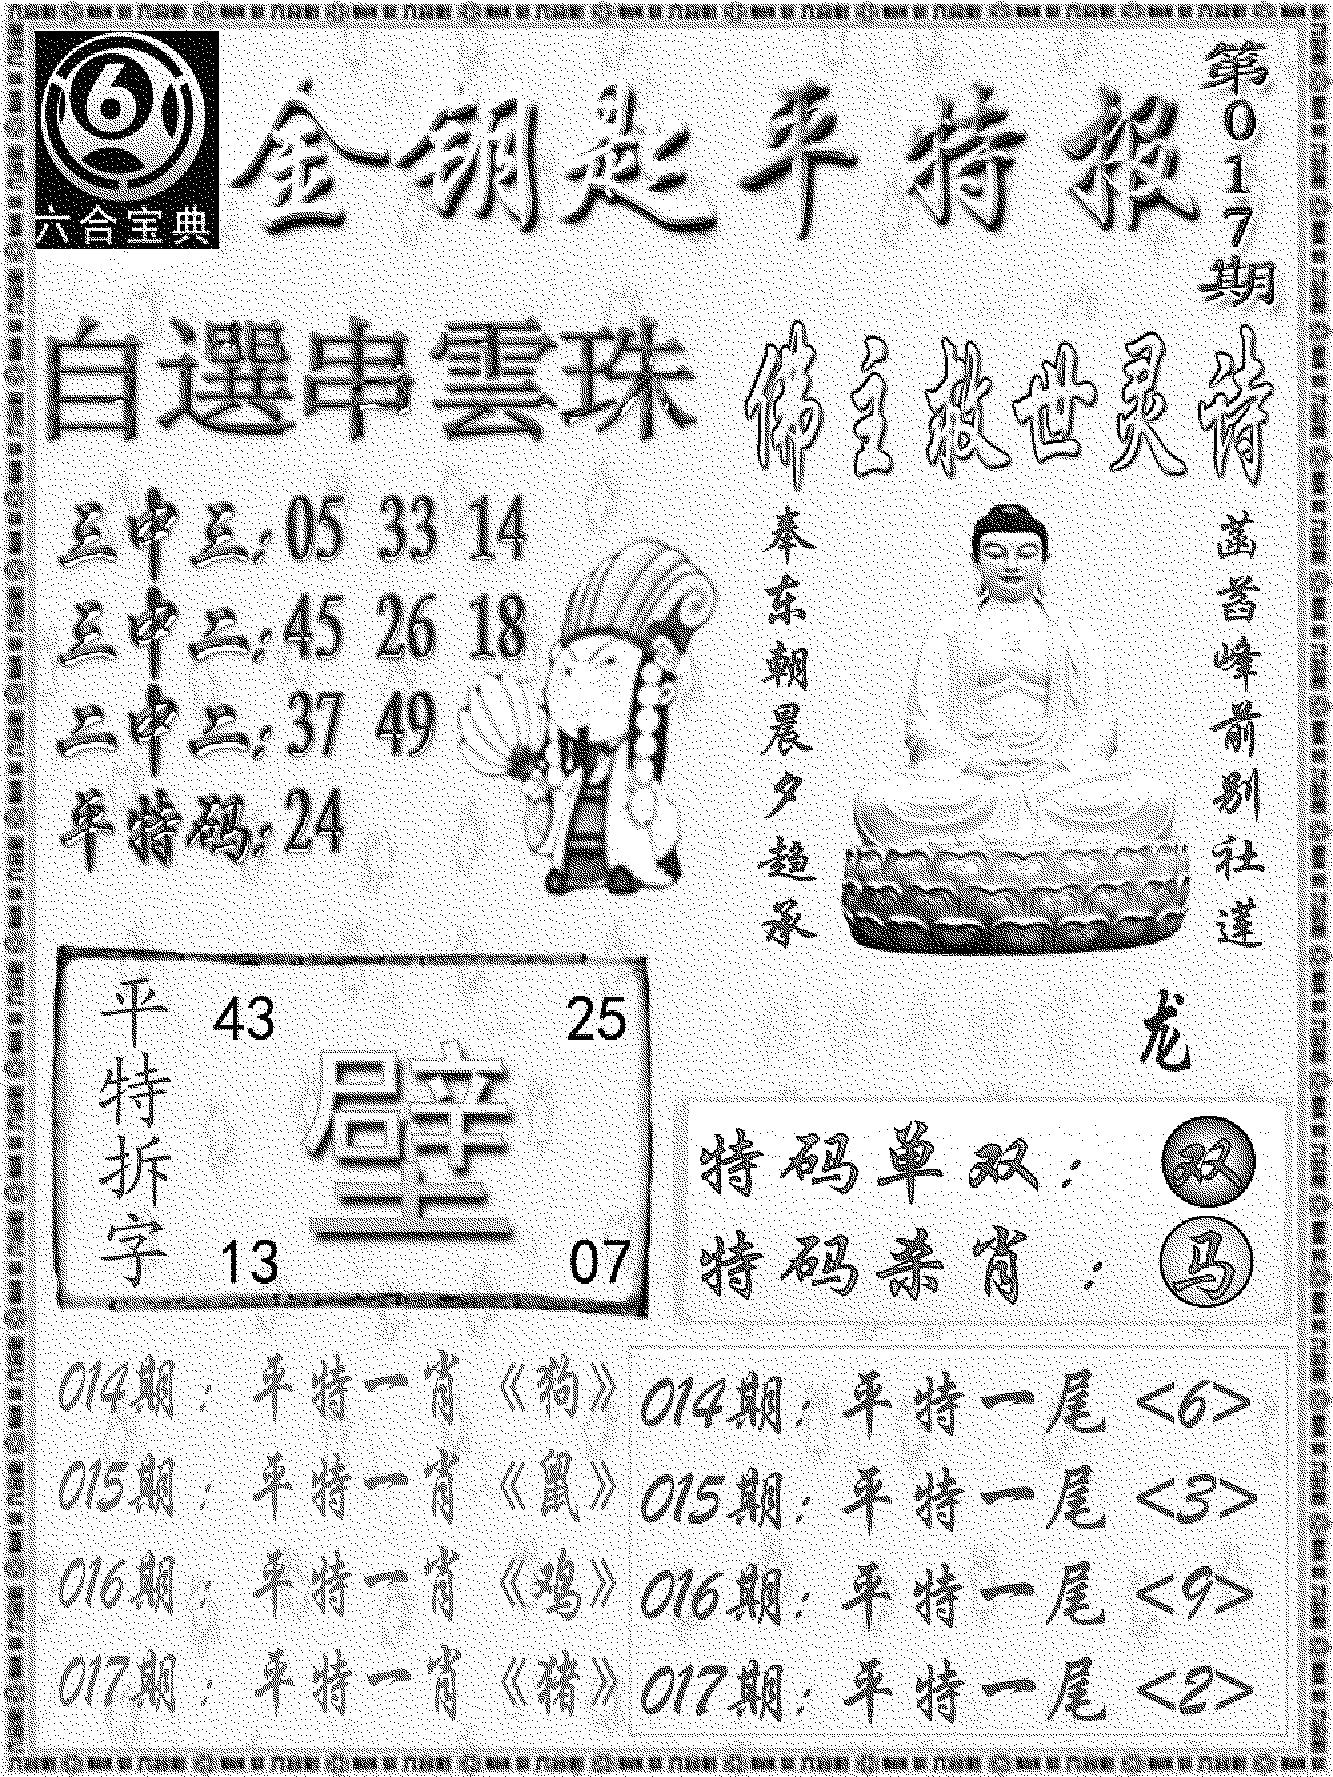 六合宝典
金钥匙平特报
第017期
自選串雲珠
三中三:05 33 14
三中二:45 26 18
二中二:37 49
平特码:24
佛主救世灵诗
菡萏峰前别社莲
奉东朝晨夕趋承
龙
平特拆字
43 25
壁
13 07
特码单双: 双
特码杀肖: 马
014期: 平特一肖《狗》
015期: 平特一肖《鼠》
016期: 平特一肖《鸡》
017期: 平特一肖《猪》
014期: 平特一尾<6>
015期: 平特一尾<3>
016期: 平特一尾<9>
017期: 平特一尾<2>